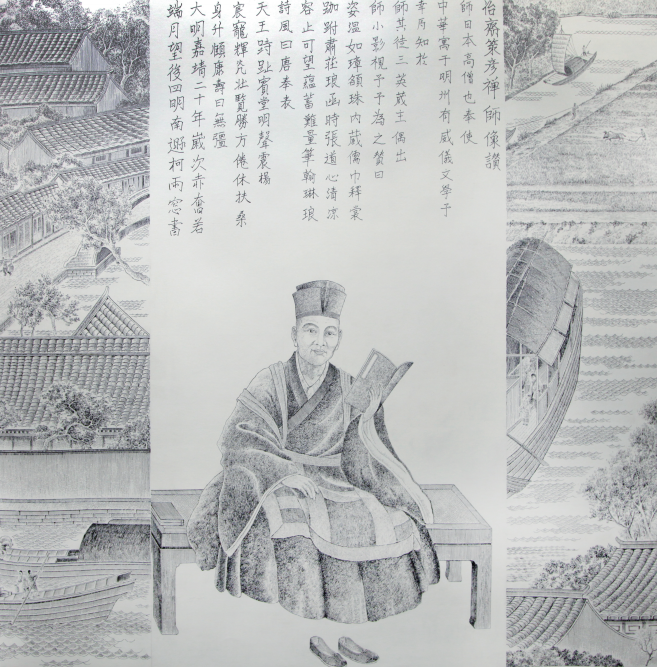 怡齋策彦禅師像讚
師日本高僧也奉使
中華寓于明州有威儀文學予
幸乃知於
師其徒三英蔵主偶出
師小影視予予為之赞曰
姿温如璋頷珠内蔵儒巾释裳
跏趺肅莊琅函時張道心清凉
容止可望蘊蓄難量華翰琳琅
詩風曰唐奉表
天王跱趾賓堂明聲袁楊
宸寵輝光壮覽勝方倦休扶桑
身升頤康壽曰無疆
大明嘉靖二十年嵗次赤奮若
端月望後四明南柯雨窓書